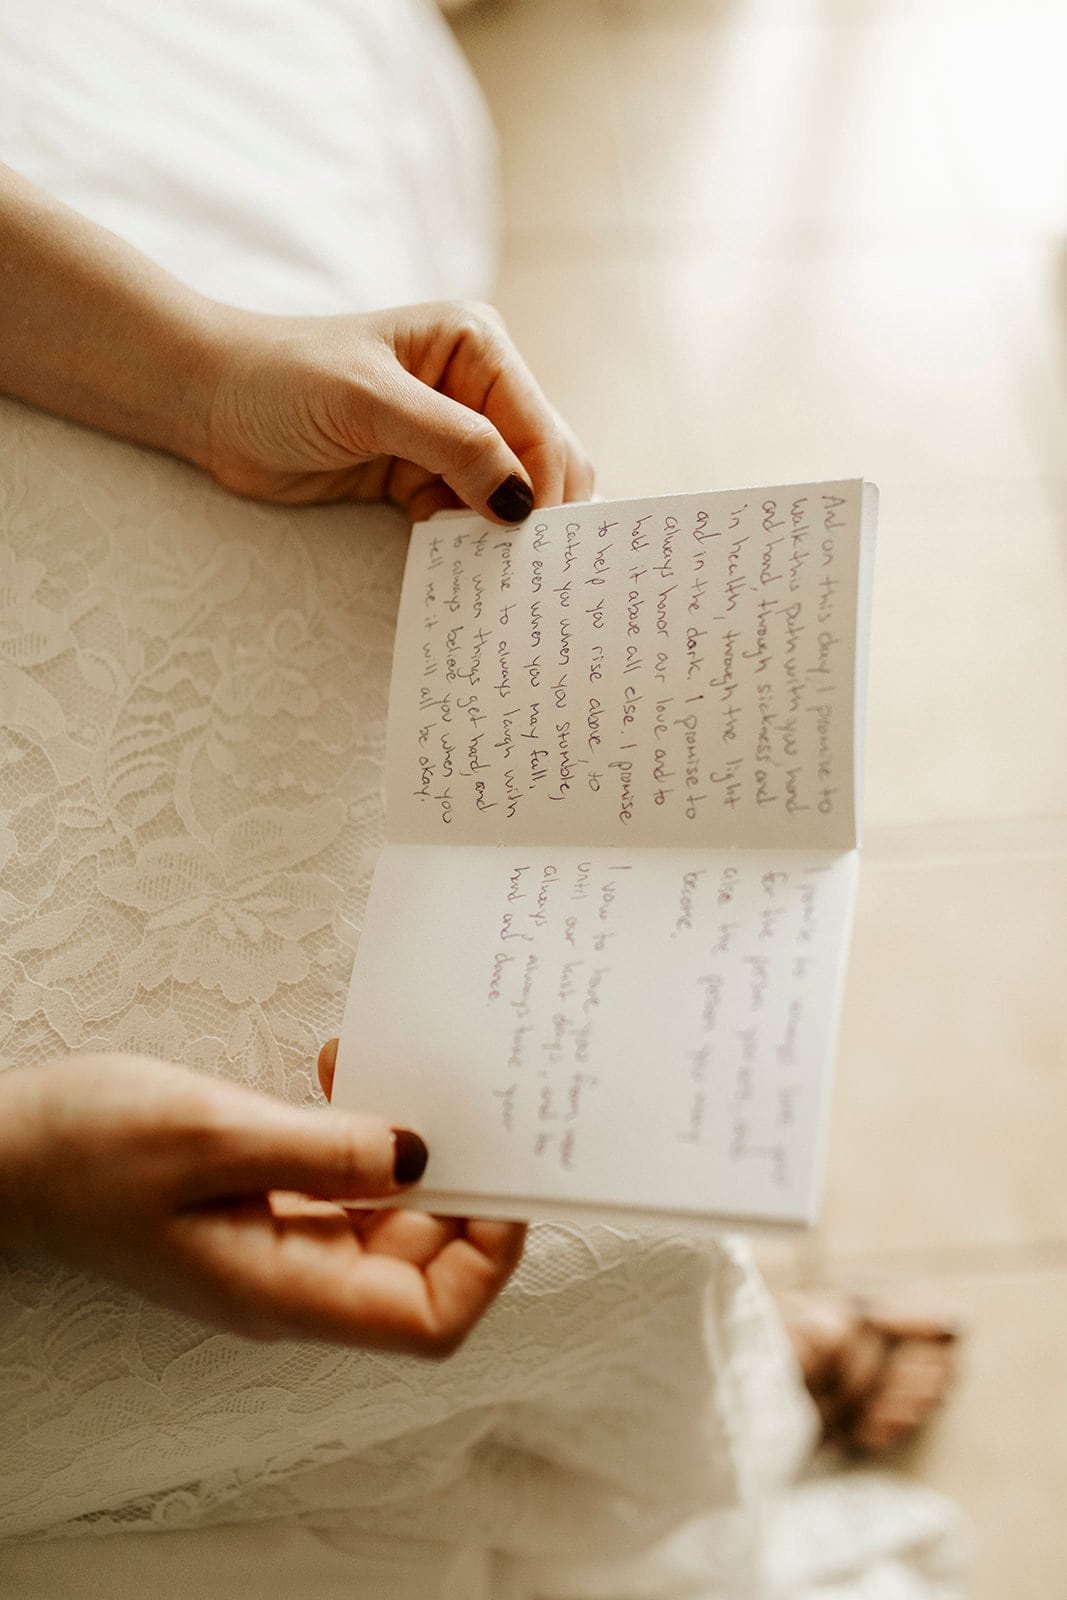 And on this day, I promise to
walk this path with you hand
and hand, through sickness and
in health, through the light
and in the dark. I promise to
always honor our love and to
hold it above all else. I promise
to help you rise above, to
catch you when you stumble,
and even when you may fall.
I promise to always laugh with
you when things get hard, and
to always believe you when you
tell me it will all be okay.
I promise to always love you
for the person you are, and
also the person you may
become.
I vow to love you from now
until our last days, and to
always, always take your
hand and dance.